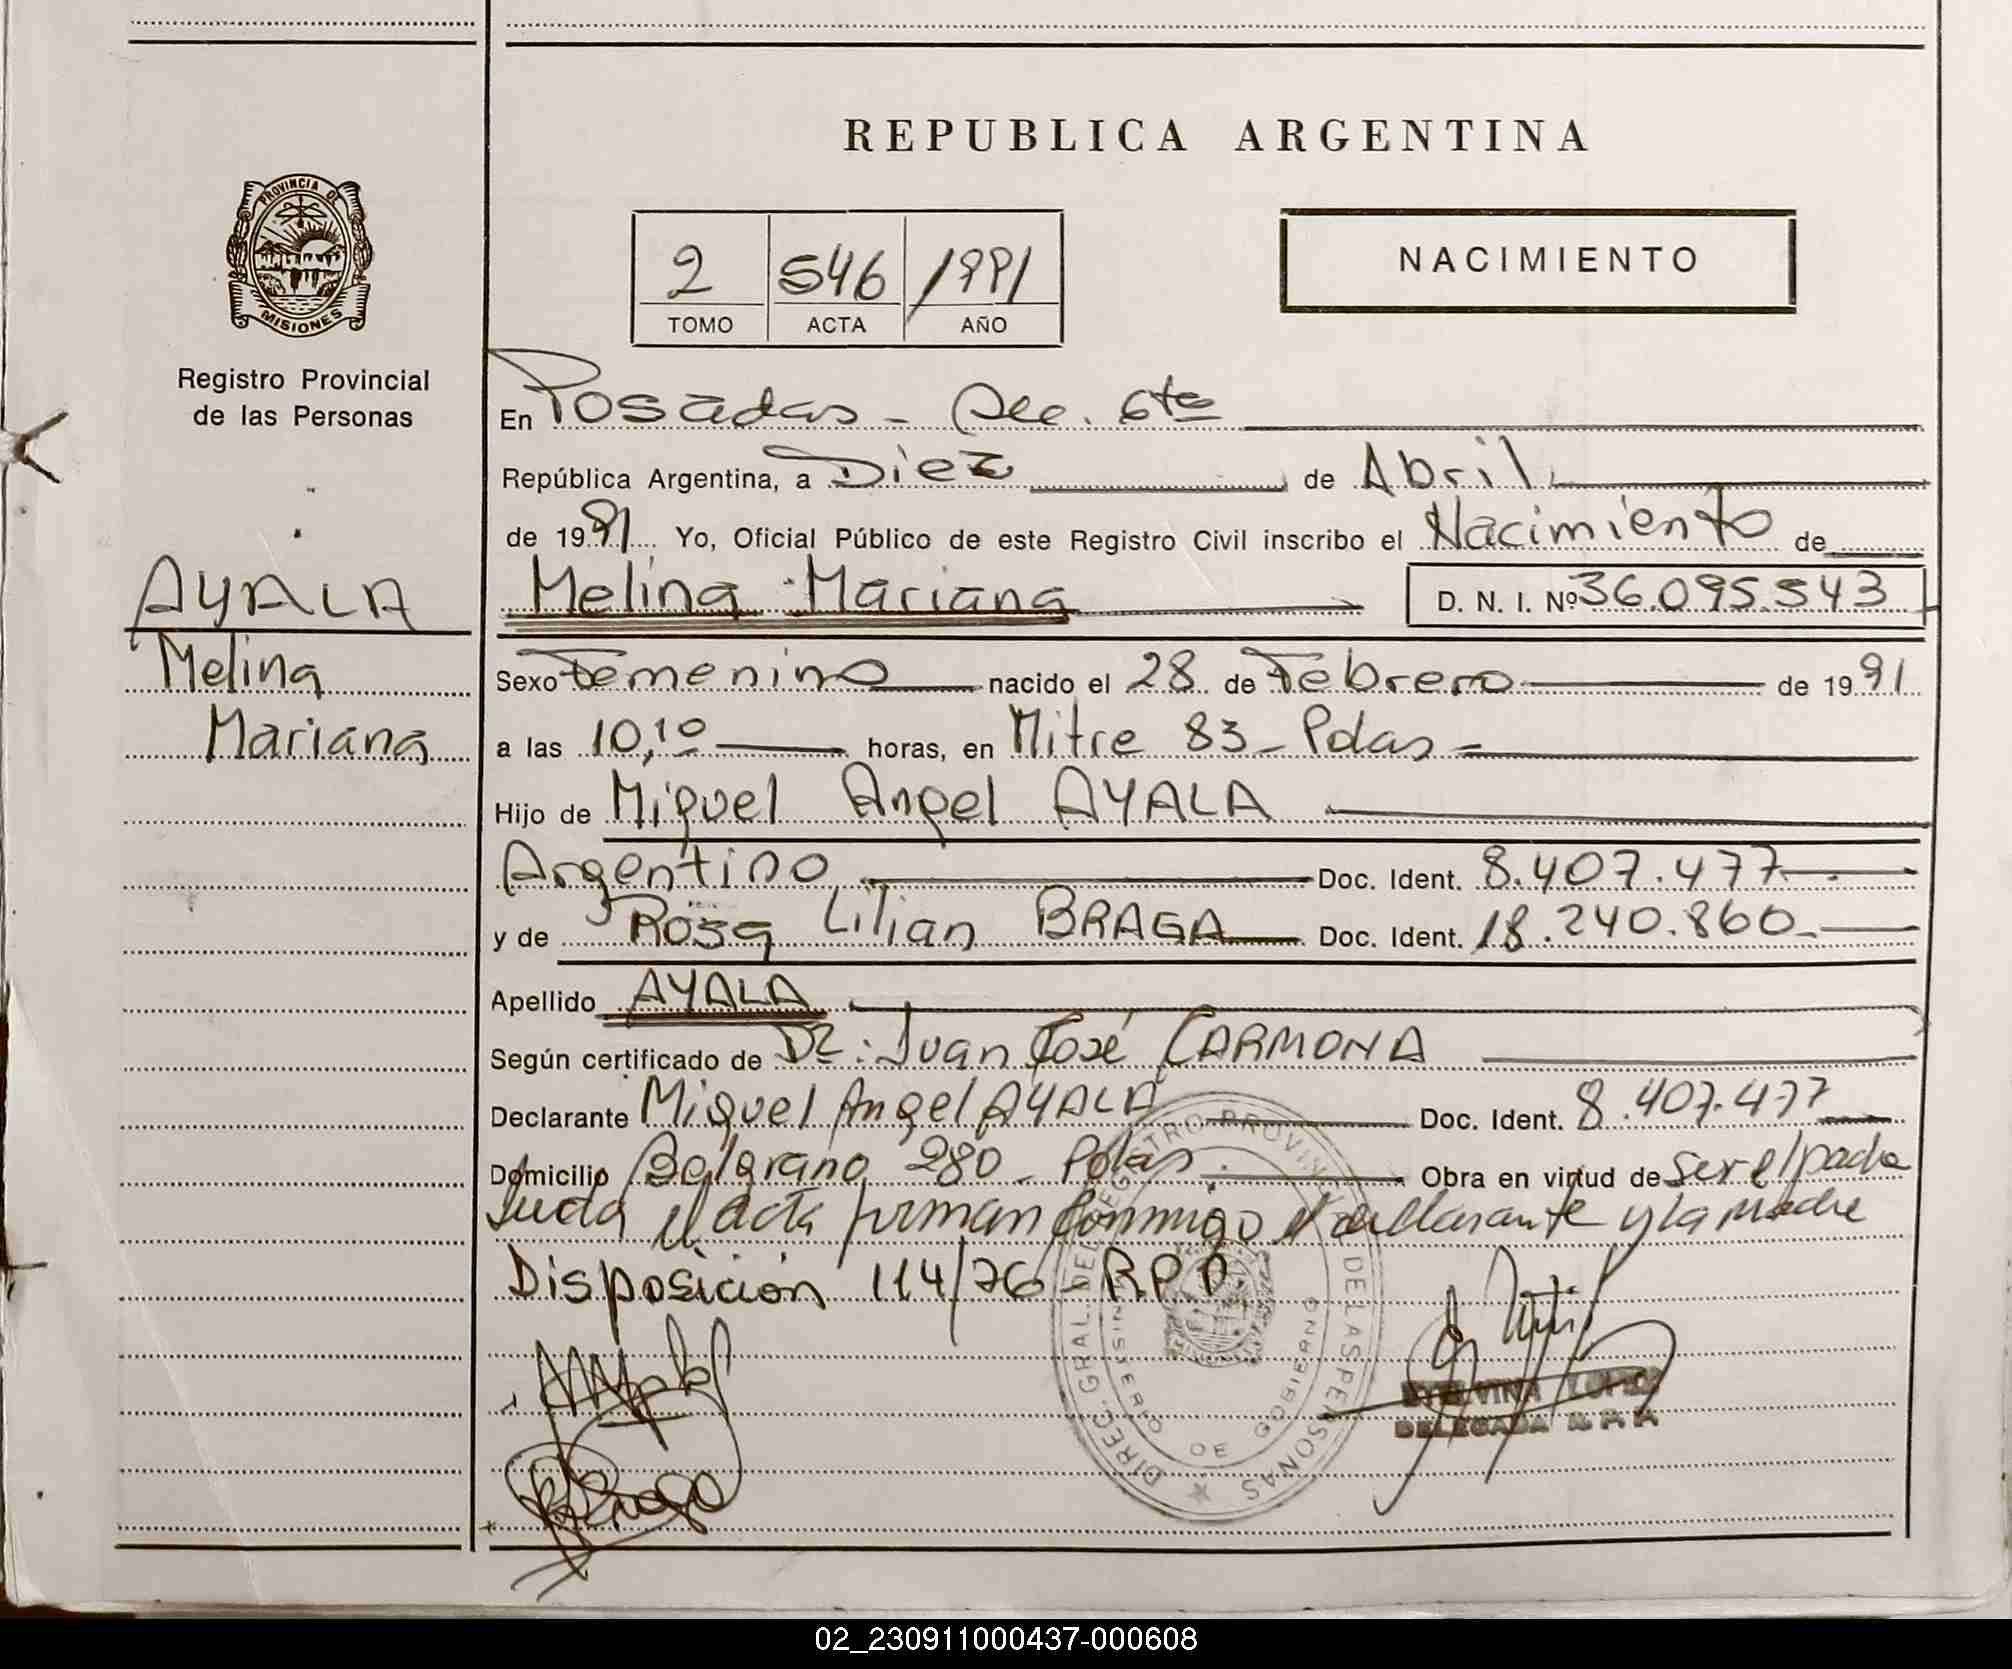 REPUBLICA ARGENTINA
PROVINCIA DE
MISIONES
Registro Provincial
de las Personas
2 546 1991
TOMO ACTA AÑO
NACIMIENTO
AYALA
Melina
Mariana
En Posadas - Sec. 6ta
República Argentina, a Diez de Abril
de 1991 Yo, Oficial Público de este Registro Civil inscribo el Nacimiento de
Melina Mariana D. N. I. Nº 36.095.543
Sexo Femenino nacido el 28 de Febrero de 1991
a las 10,10 horas, en Mitre 83 - Pdas -
Hijo de Miguel Angel AYALA
Argentino Doc. Ident. 8.407.477
y de Rosa Lilian BRAGA Doc. Ident. 18.240.860
Apellido AYALA
Según certificado de Dr: Juan José CARMONA
Declarante Miguel Angel AYALA Doc. Ident. 8.407.477
Domicilio Belgrano 280 - Pdas. Obra en virtud de ser el padre
el acta firman conmigo el declarante y la madre
Disposición 114/76 - R.P.P
DIREC. GRAL. DEL REGISTRO PROVINCIAL DE LAS PERSONAS
DE GOBIERNO
DELEGADA R. P. P.
02_230911000437-000608